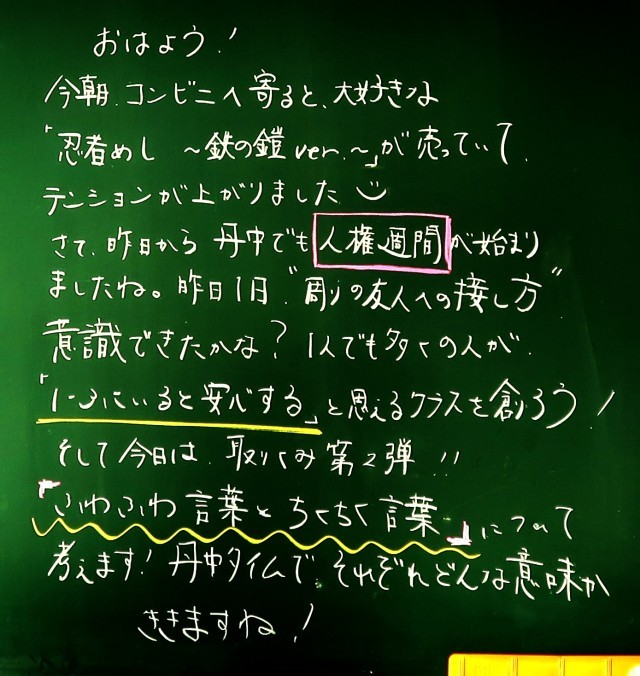 おはよう!
今朝、コンビニへ寄ると、大好きな
「忍者めし ～鉄の鎧ver.～」が売っていて、
テンションが上がりました
さて、昨日から丹中でも人権週間が始まり
ましたね。昨日1日"周りの友人への接し方"
意識できたかな?1人でも多くの人が、
「1-3にいると安心する」と思えるクラスを創ろう!
そして今日は、取りくみ第2弾!!
「ふわふわ言葉とちくちく言葉」について
考えます!丹中タイムで、それぞれどんな意味か
ききますね!